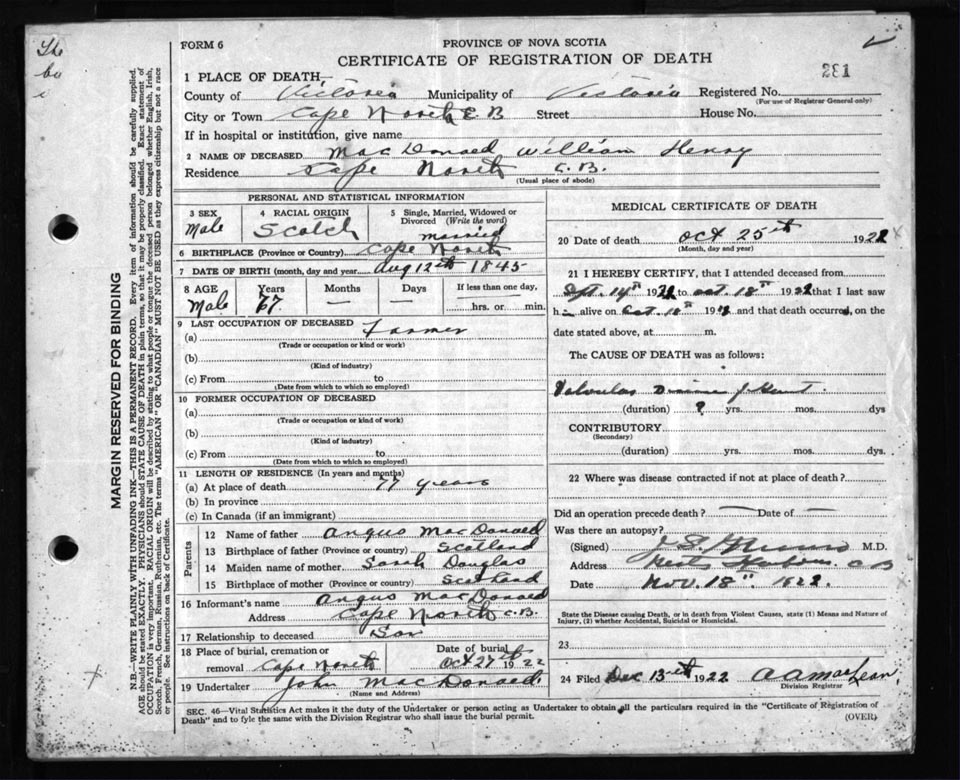 FORM 6
PROVINCE OF NOVA SCOTIA
CERTIFICATE OF REGISTRATION OF DEATH
231
1 PLACE OF DEATH
County of Victoria Municipality of Victoria Registered No.
(For use of Registrar General only)
City or Town Cape North C B Street House No.
If in hospital or institution, give name
2 NAME OF DECEASED MacDonald William Henry
Residence Cape North C. B.
(Usual place of abode)
PERSONAL AND STATISTICAL INFORMATION
3 SEX Male
4 RACIAL ORIGIN Scotch
5 Single, Married, Widowed or Divorced (Write the word) married
6 BIRTHPLACE (Province or Country) Cape North
7 DATE OF BIRTH (month, day and year) Aug 12th 1845
8 AGE Years Months Days If less than one day,
Male 67 — — hrs. or min.
9 LAST OCCUPATION OF DECEASED
(a) Farmer
(Trade or occupation or kind or work)
(b)
(Kind of industry)
(c) From to
(Date from which to which so employed)
10 FORMER OCCUPATION OF DECEASED
(a)
(Trade or occupation or kind of work)
(b)
(Kind of industry)
(c) From to
(Date from which to which so employed)
11 LENGTH OF RESIDENCE (In years and months)
(a) At place of death 77 years
(b) In province
(c) In Canada (if an immigrant)
Parents
12 Name of father Angus MacDonald
13 Birthplace of father (Province or country) Scotland
14 Maiden name of mother Sarah Douglas
15 Birthplace of mother (Province or country) Scotland
16 Informant's name Angus MacDonald
Address Cape North C.B.
17 Relationship to deceased Son
18 Place of burial, cremation or removal Cape North
Date of burial Oct 27th 1922
19 Undertaker John MacDonald
(Name and Address)
MEDICAL CERTIFICATE OF DEATH
20 Date of death Oct 25th 1922
(Month, day and year)
21 I HEREBY CERTIFY, that I attended deceased from
Sept. 14th 1922 to Oct. 18th 1922 that I last saw
him alive on Oct. 18th 1922 and that death occurred, on the
date stated above, at m.
The CAUSE OF DEATH was as follows:
Valvular Disease of Heart.
(duration) ? yrs. mos. dys
CONTRIBUTORY
(Secondary)
(duration) yrs. mos. dys.
22 Where was disease contracted if not at place of death?
Did an operation precede death? — Date of —
Was there an autopsy?
(Signed) M.D.
Address Harbour C B
Date Nov. 18th 1922.
State the Disease causing Death, or in death from Violent Causes, state (1) Means and Nature of
Injury, (2) whether Accidental, Suicidal or Homicidal.
23
24 Filed Dec 13th 1922 A A MacLean
Division Registrar
SEC. 46—Vital Statistics Act makes it the duty of the Undertaker or person acting as Undertaker to obtain all the particulars required in the "Certificate of Registration of
Death" and to fyle the same with the Division Registrar who shall issue the burial permit.
(OVER)
MARGIN RESERVED FOR BINDING
N.B.—WRITE PLAINLY WITH UNFADING INK—THIS IS A PERMANENT RECORD. Every item of information should be carefully supplied.
AGE should be stated EXACTLY. PHYSICIANS should STATE CAUSE OF DEATH in plain terms, so that it may be properly classified. Exact statement of
OCCUPATION is very important. RACIAL ORIGIN will be described by stating to what people or tongue the deceased person belonged whether English, Irish,
Scotch, French, German, Russian, Ruthenian, etc. The terms "AMERICAN" OR "CANADIAN" MUST NOT BE USED as they express citizenship but not a race
or people. See instructions on back of Certificate.